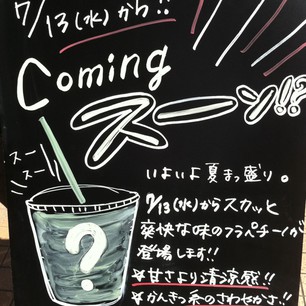 7/13(水)から!!
Coming
スーン!!?
スー
スー
?
いよいよ夏まっ盛り。
7/13(水)からスカッと
爽快な味のフラペチーノが
登場します!!
★甘さより清涼感!!
★かんきつ系のさわやかさ!!